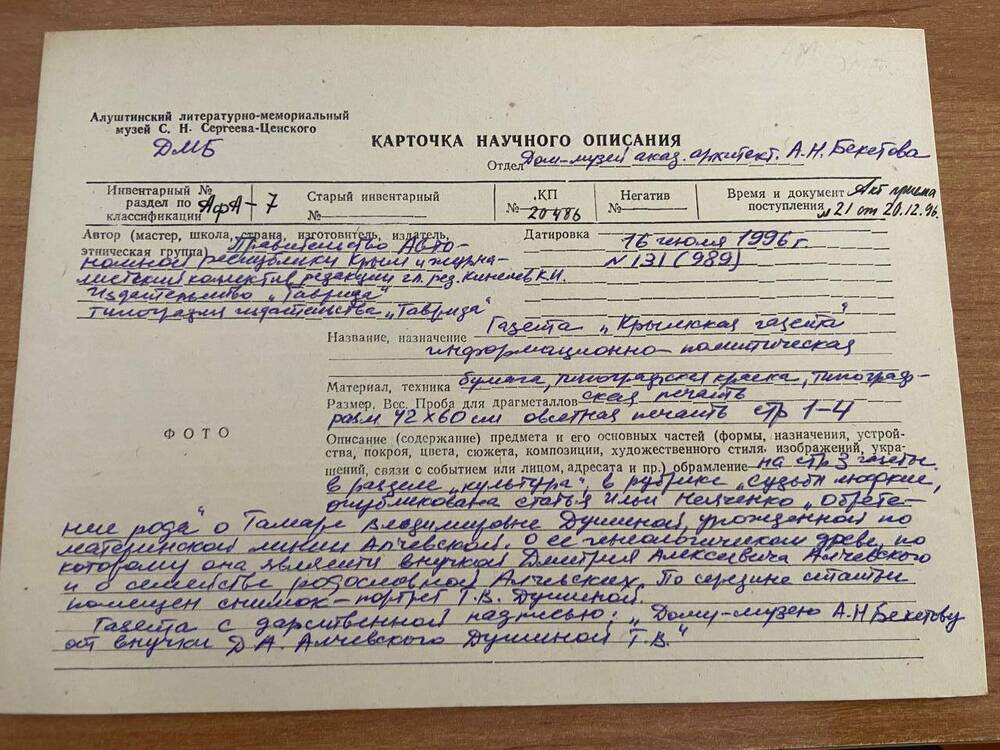 Алуштинский литературно-мемориальный
музей С. Н. Сергеева-Ценского
ДМБ
КАРТОЧКА НАУЧНОГО ОПИСАНИЯ
Отдел Дом-музей акад. архитект. А.Н. Бекетова
Инвентарный №
раздел по
классификации АфА-7
Старый инвентарный
№
КП
№ 20486
Негатив
№
Время и документ Акт приема
поступления №21 от 20.12.96.
Автор (мастер, школа, страна, изготовитель, издатель,
этническая группа) Правительство Авто-
номной республики Крым и журна-
листский коллектив редакции гл. ред. К.И.
Издательство „Таврида"
типография издательства „Таврида"
Датировка 16 июля 1996 г
№ 131 (989)
Газета „Крымская газета"
Название, назначение
информационно-политическая
Материал, техника бумага, типографская краска, типограф-
Размер, Вес. Проба для драгметаллов ская печать
разм 42×60 см офсетная печать стр 1-4
ФОТО
Описание (содержание) предмета и его основных частей (формы, назначения, устрой-
ства, покроя, цвета, сюжета, композиции, художественного стиля, изображений, укра-
шений, связи с событием или лицом, адресата и пр.) обрамление на стр 3 газеты
в разделе „культура", в рубрике „Судьбы людские,
опубликована статья Ильи „Обрете-
ние рода" о Тамаре Владимировне Душиной, урожденной по
материнской линии Алчевской, о ее генеологическом древе, по
которому она является внучкой Дмитрия Алексеевича Алчевского
и о семействе родословной Алчевских. По середине статьи
помещен снимок-портрет Т.В. Душиной.
Газета с дарственной надписью: „Дому-музею А.Н Бекетову
от внучки Д.А. Алчевского Душиной Т.В."